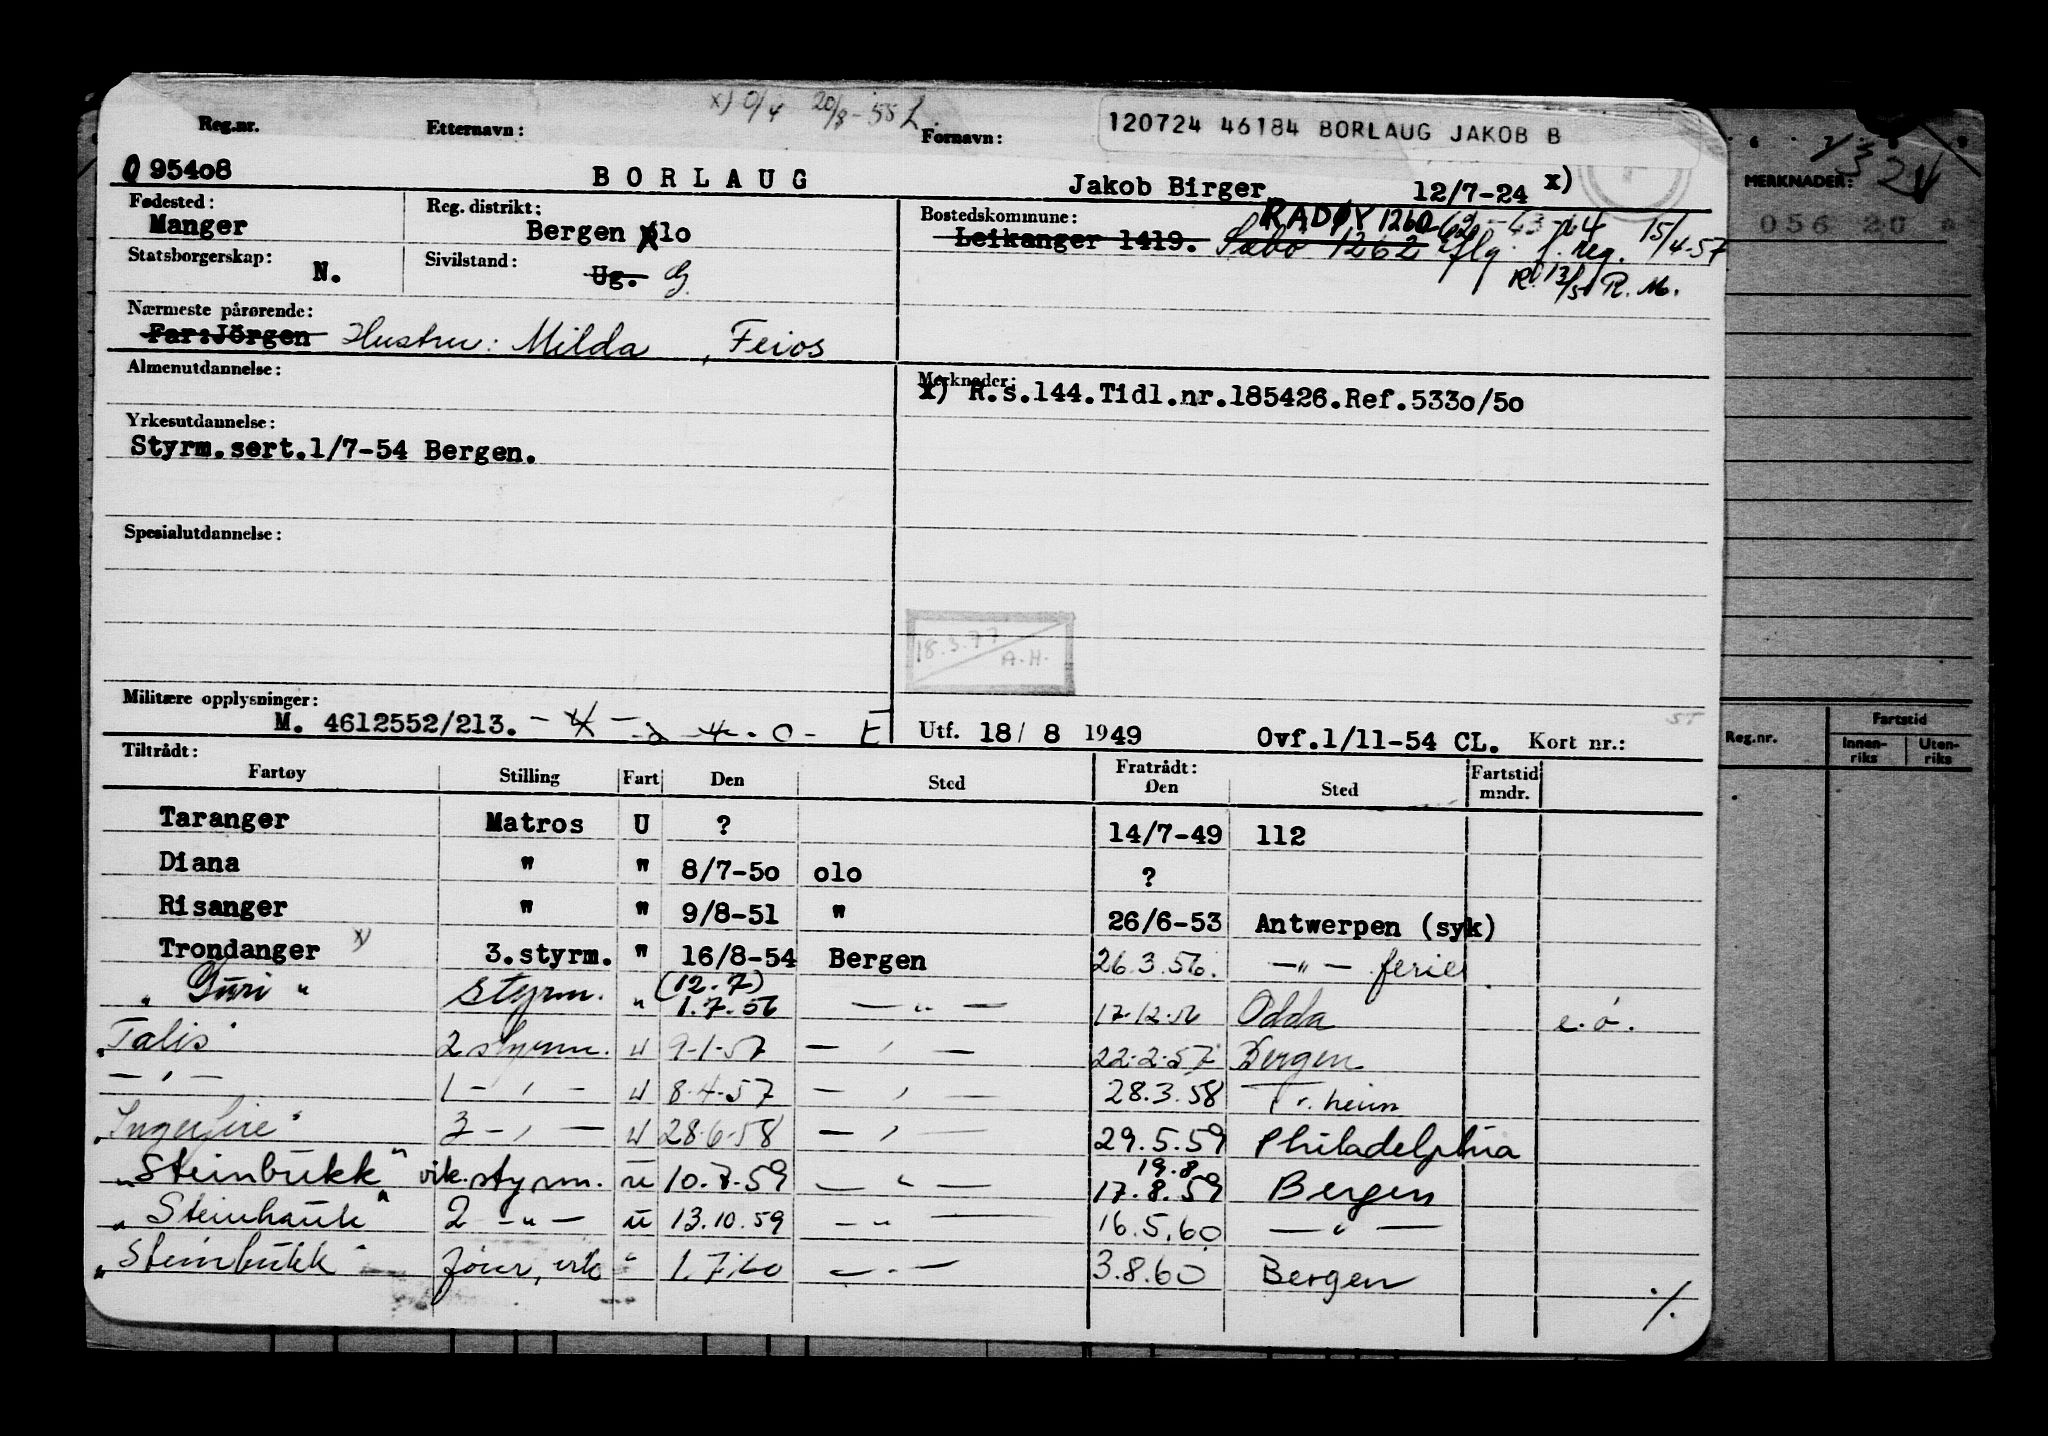 x) 0/4 20/8-55 L.
120724 46184 BORLAUG JAKOB B
Reg.nr. Etternavn: Fornavn:
095408 BORLAUG Jakob Birger 12/7-24 x)
Fødested: Manger
Reg. distrikt: Bergen olo
Bostedskommune: RADØY 1260
Leikanger 1419. Sæbø 1262 iflg. f. reg. 15/4-57
R.M.
Statsborgerskap: N.
Sivilstand: Ug. G
Nærmeste pårørende:
Far:Jörgen Hustru: Milda, Feios
Almenutdannelse:
Merknader:
x) R.s.144.Tidl.nr.185426.Ref.5330/50
Yrkesutdannelse:
Styrm.sert.1/7-54 Bergen.
Spesialutdannelse:
18.3.77
A.H.
Militære opplysninger:
M. 4612552/213.
Utf. 18/ 8 1949 Ovf.1/11-54 CL. Kort nr.:
Tiltrådt: Fratrådt:
Fartøy Stilling Fart Den Sted Den Sted Fartstid mndr.
Taranger Matros U ? 14/7-49 112
Diana " " 8/7-50 olo ?
Risanger " " 9/8-51 " 26/6-53 Antwerpen (syk)
Trondanger x) 3.styrm. " 16/8-54 Bergen 26.3.56. -"- ferie
(12.7)
"Guri" styrm. " 1.7.56 -"- 17.12.56 Odda e.ó.
"Talis" 2 styrm. u 9-1-57 -"- 22-2-57 Bergen
-"- 1 -"- u 8-4-57 -"- 28.3.58 Tr.heim
"Ingerfire" 3 -"- u 28-6-58 -"- 29.5.59 Philadelphia
19.8
"Steinbukk" vik.styrm. u 10.7.59 -"- 17.8.59 Bergen
"Steinhauk" 2 -"- u 13.10.59 -"- 16.5.60 -"-
"Steinbukk" vik " 1.7.60 -"- 3.8.60 Bergen
./.
MERKNADER:
056 20
Reg.nr. Fartstid
Innenriks Utenriks